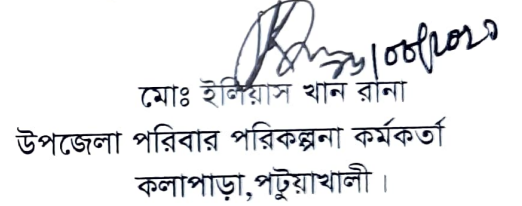 মোঃ ইলিয়াস খান রানা
উপজেলা পরিবার পরিকল্পনা কর্মকর্তা
কলাপাড়া,পটুয়াখালী।